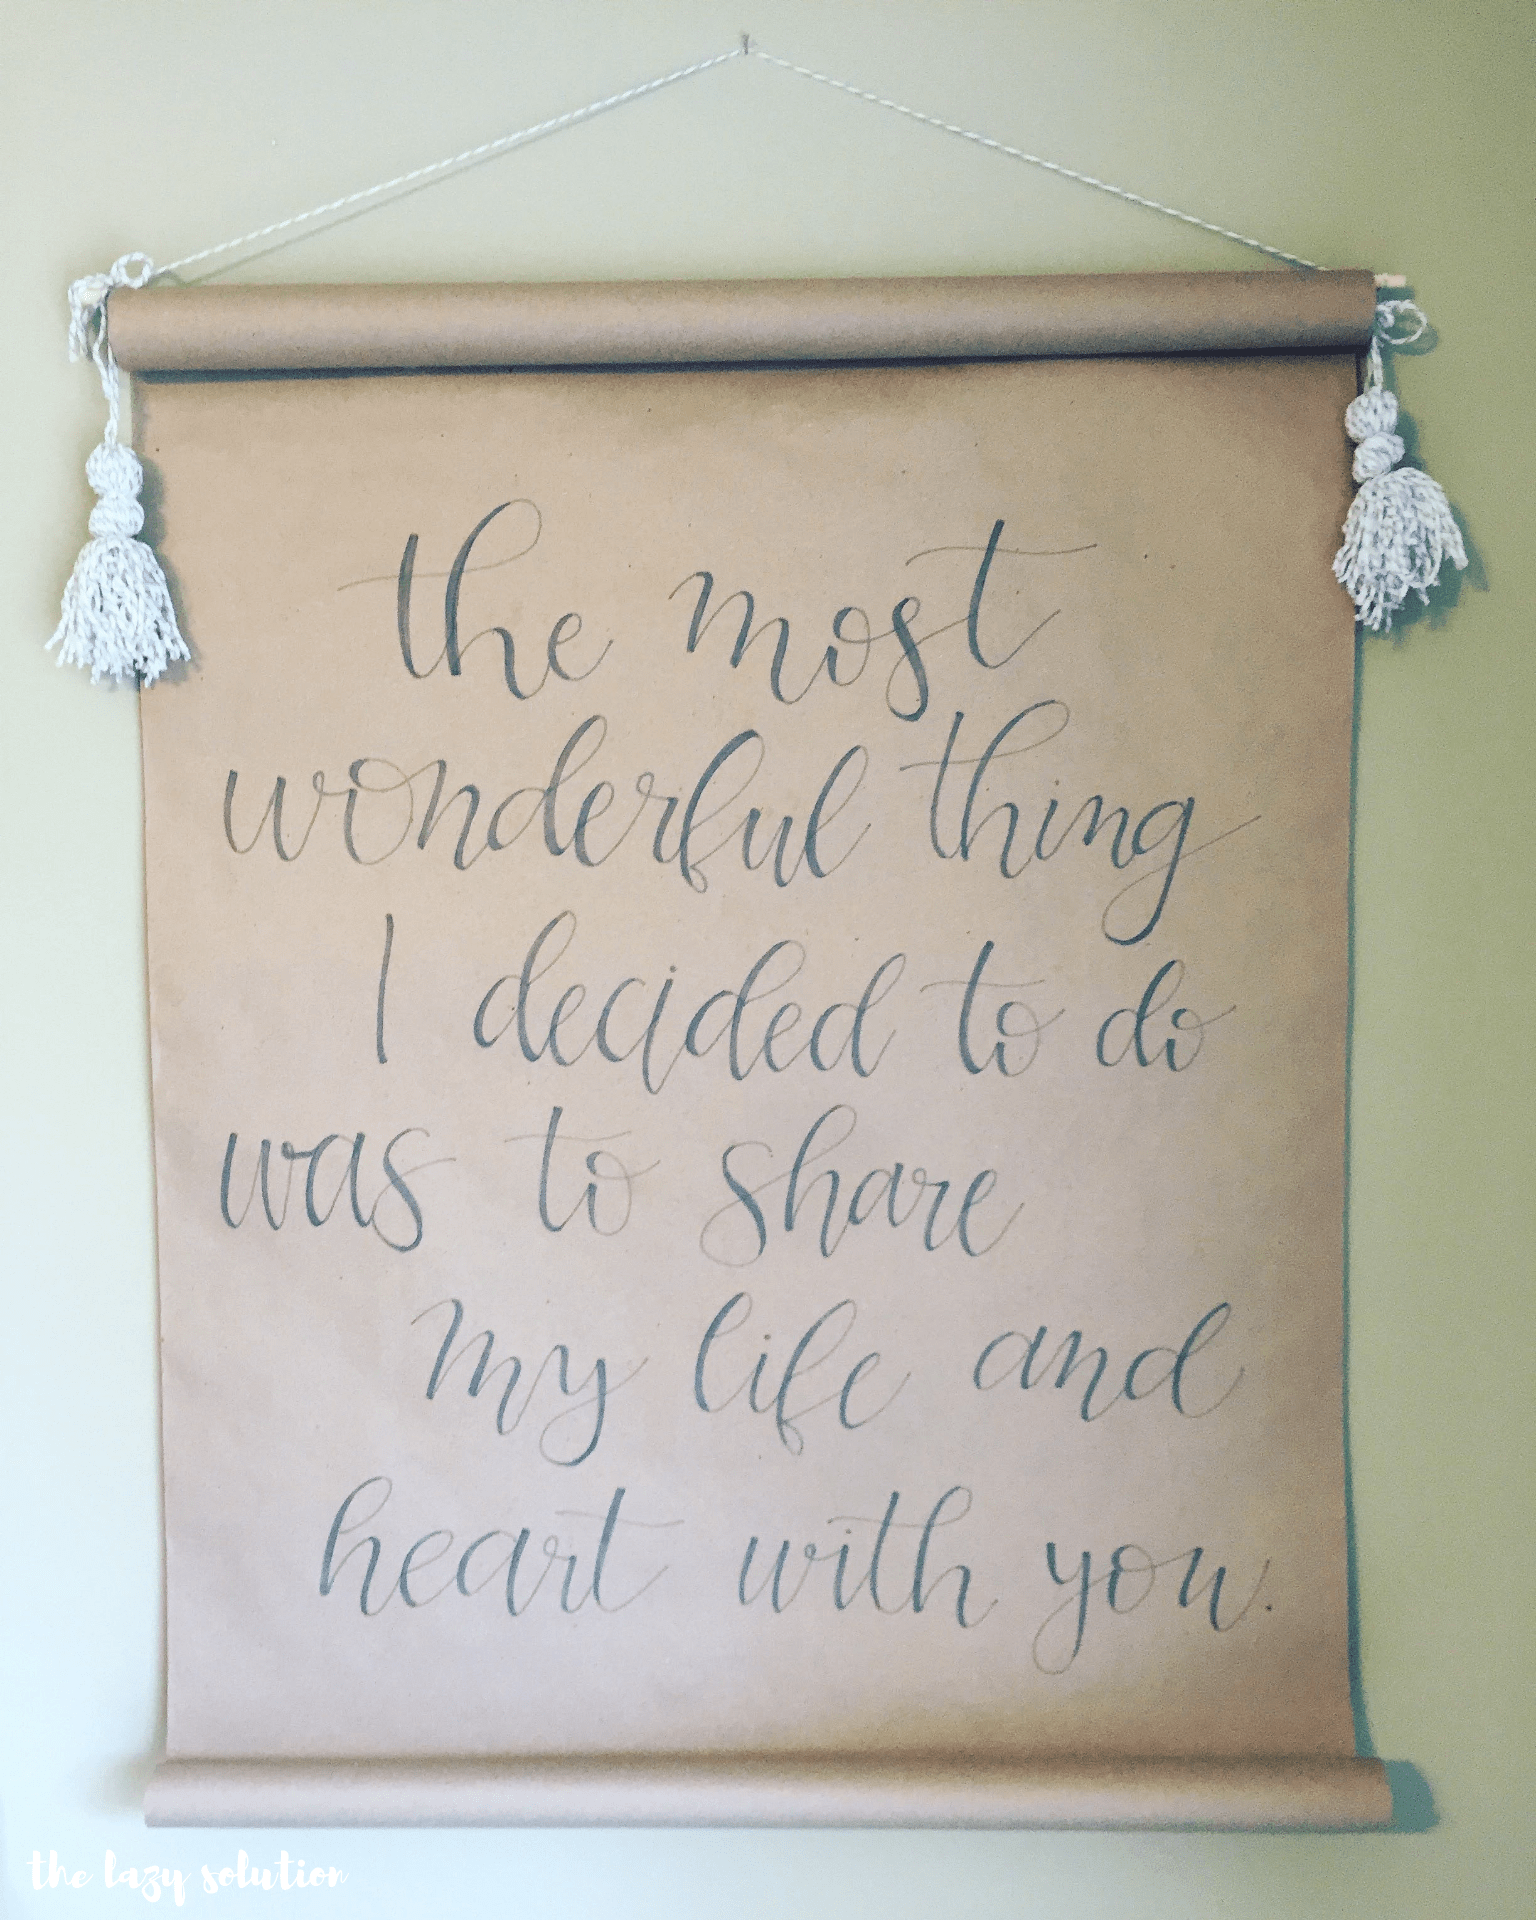 the most
wonderful thing
I decided to do
was to share
my life and
heart with you.
the lazy solution